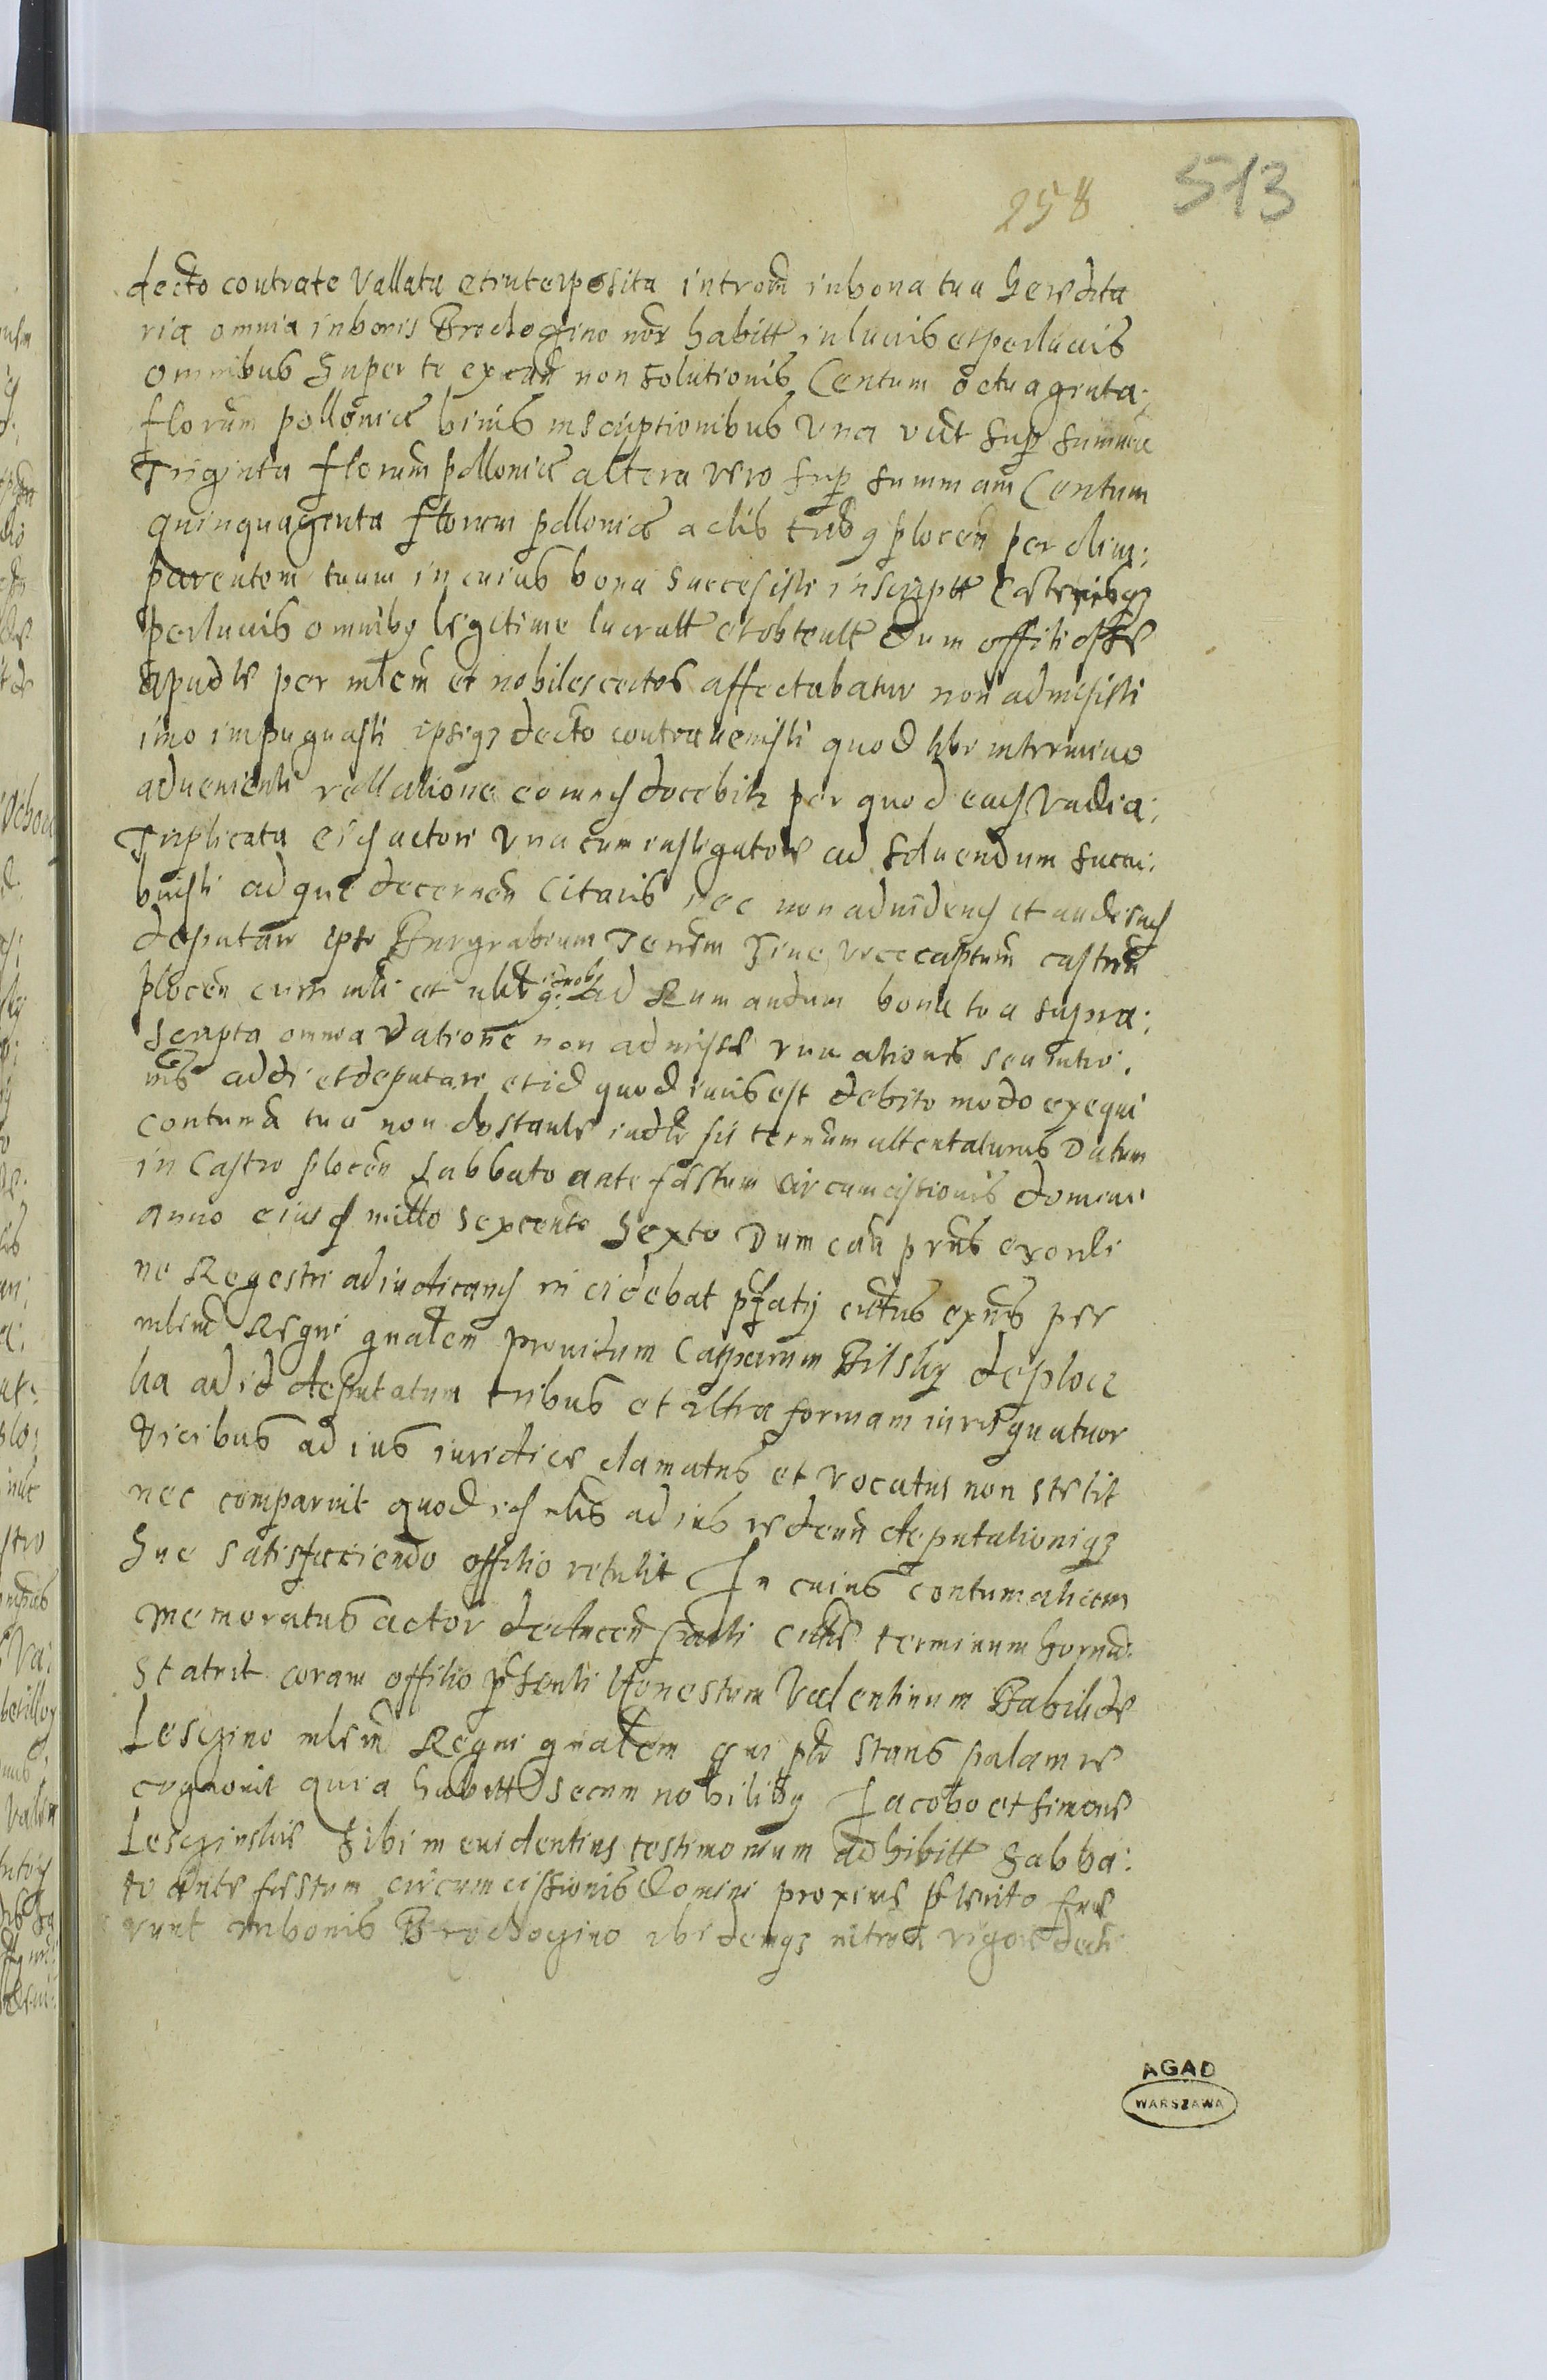 258
513
decto contra te vallata et interposita introm in bona tua heredita
ria omnia in bonis Brochoczino nor habitt in lucris et perlucris
omnibus super te ex caa non solutionis Centum octuaginta
florum pollonica binis inscriptionibus una vidt sup summa
Triginta florum pollonica altera vero sup summam Centum
quinquaginta florum pollonica actis tribg plocen per olim
parentem tuum in cuius bona successisti inscriptt caeterisqz
perlucris omnibg legitime lucratt et obtentt dum officiose
apud te per mlem et nobiles certos affectabatur non admisisti
imo impugnasti ipsiqz decto contravenisti quod tibi in termino
advenienti rellatione eorundz docebitr per quod easdz vadia
Triplicata eidz actori una cum instigatore ad soluendum succu
buisti ad que decernen Citaris nec non ad videndz et audiendz
deputari ipse Burgrabium Terrem sive vicecaptum castren
plocen cum mli et nobibg ad Rumandum bona tua supra
scripta omnia ratione non admisse rumationis seu intro
mis addi et deputari et id quod iuris est debito modo exequi
contuma tua non obstante iudtr sis terminum attentaturus Datum
in Castro plocen Sabbato ante festum circumcisionis domini
anno eiusdz millo sexcento sexto Dum caa pntis ex ordi
ne Regestri ad iudicandz incidebat pfatg citatus exns per
mlem Regni gnalem providum Casparum Bilsky de plocz
ka ad id deputatum tribus et ultra formam iuris quatuor
vicibus ad ius iuridice clamatus et vocatus non stetit
nec comparuit quod idz mlis ad ius redeun deputationiqz
sue satisfaciendo officio retulit In cuius contumatiam
memoratus actor docturen parti citate terminum hornum
statuit coram officio psenti Honestum Valentinum Babili de
Lesczino mlem Regni gnalem qui pte stans palam re
cognovit quia habitt secum nobilibg Jacobo et Simone
Lesczinskie sibi in evidentius testimonium adhibitt Sabba
to ante festum circumcissionis domini proxime pterito fue
runt in bonis Brochoczino ibidemqz introm vigore decti
AGAD
WARSZAWA